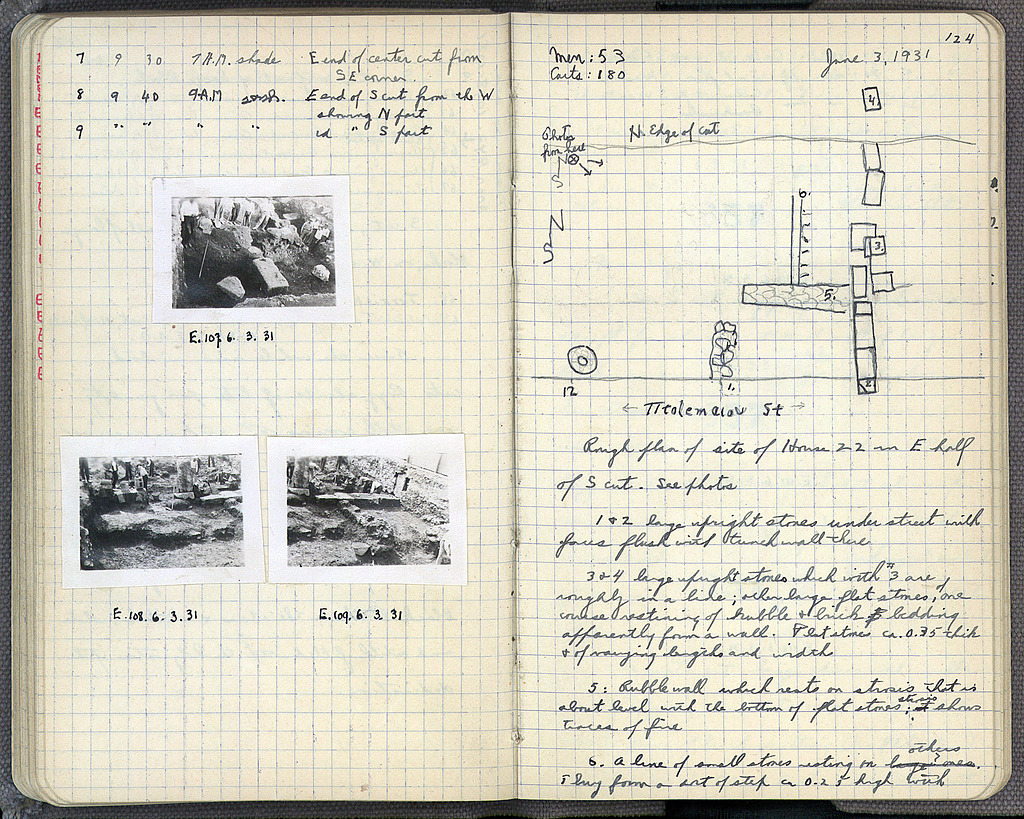 7 9 30 7 A.M. shade E end of center cut from
SE corner.
8 9 40 9 A.M. E end of S cut from the W
showing N part
9 " " " " id " S part
E.107. 6. 3. 31
E.108. 6. 3. 31
E.109. 6. 3. 31
124
Men: 53
Carts: 180
June 3, 1931
4.
Photos
from here
N. Edge of cut
N
S
N
S
6.
3.
5.
12
1.
2
← Ptolemaiou St →
Rough plan of site of House 22 in E half
of S cut. See photos
1 & 2 large upright stones under street with
faces flush with trench wall there
3 & 4 large upright stones which with #3 are
roughly in a line; other large flat stones, of one
course resting of rubble & brick bedding
apparently form a wall. Flat stones ca. 0.35 thick
& of varying lengths and widths
5: Rubble wall which rests on strosis that is
about level with the bottom of flat stones; strosis shows
traces of fire
6. A line of small stones resting on large ones. others
They form a sort of step ca 0.25 high with